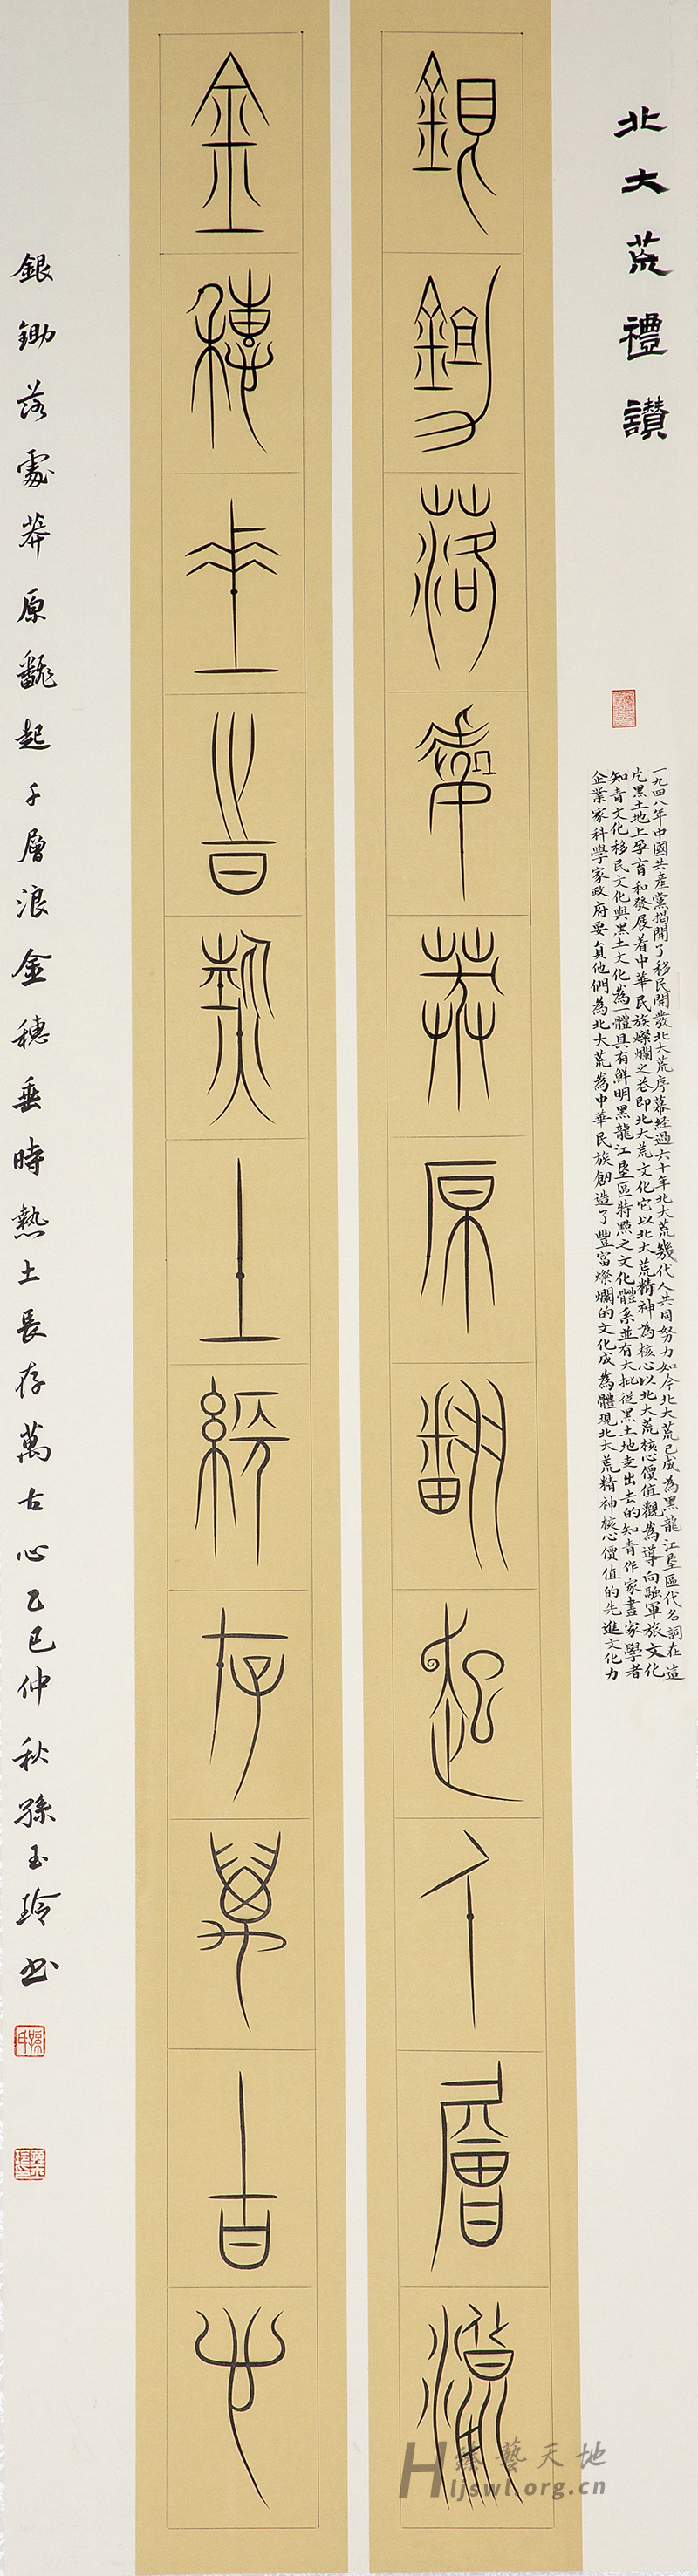 北大荒禮讚
一九四八年中國共産黨揭開了移民開發北大荒序幕經過六十年北大荒幾代人共同努力如今北大荒已成為黑龍江墾區代名詞在這
片黑土地上孕育和發展着中華民族燦爛之卷即北大荒文化它以北大荒精神為核心以北大荒核心價值觀為導向融軍旅文化
知青文化移民文化與黑土文化為一體具有鮮明黑龍江墾區特點之文化體系並有大批從黑土地走出去的知青作家畫家學者
企業家科學家政府要員他們為北大荒為中華民族創造了豐富燦爛的文化成為體現北大荒精神核心價值的先進文化力
銀鋤落處莽原翻起千層浪
金穗垂時熱土長存萬古心
銀鋤落處莽原翻起千層浪金穗垂時熱土長存萬古心乙巳仲秋孫玉玲書
臻藝天地
Hljswl.org.cn